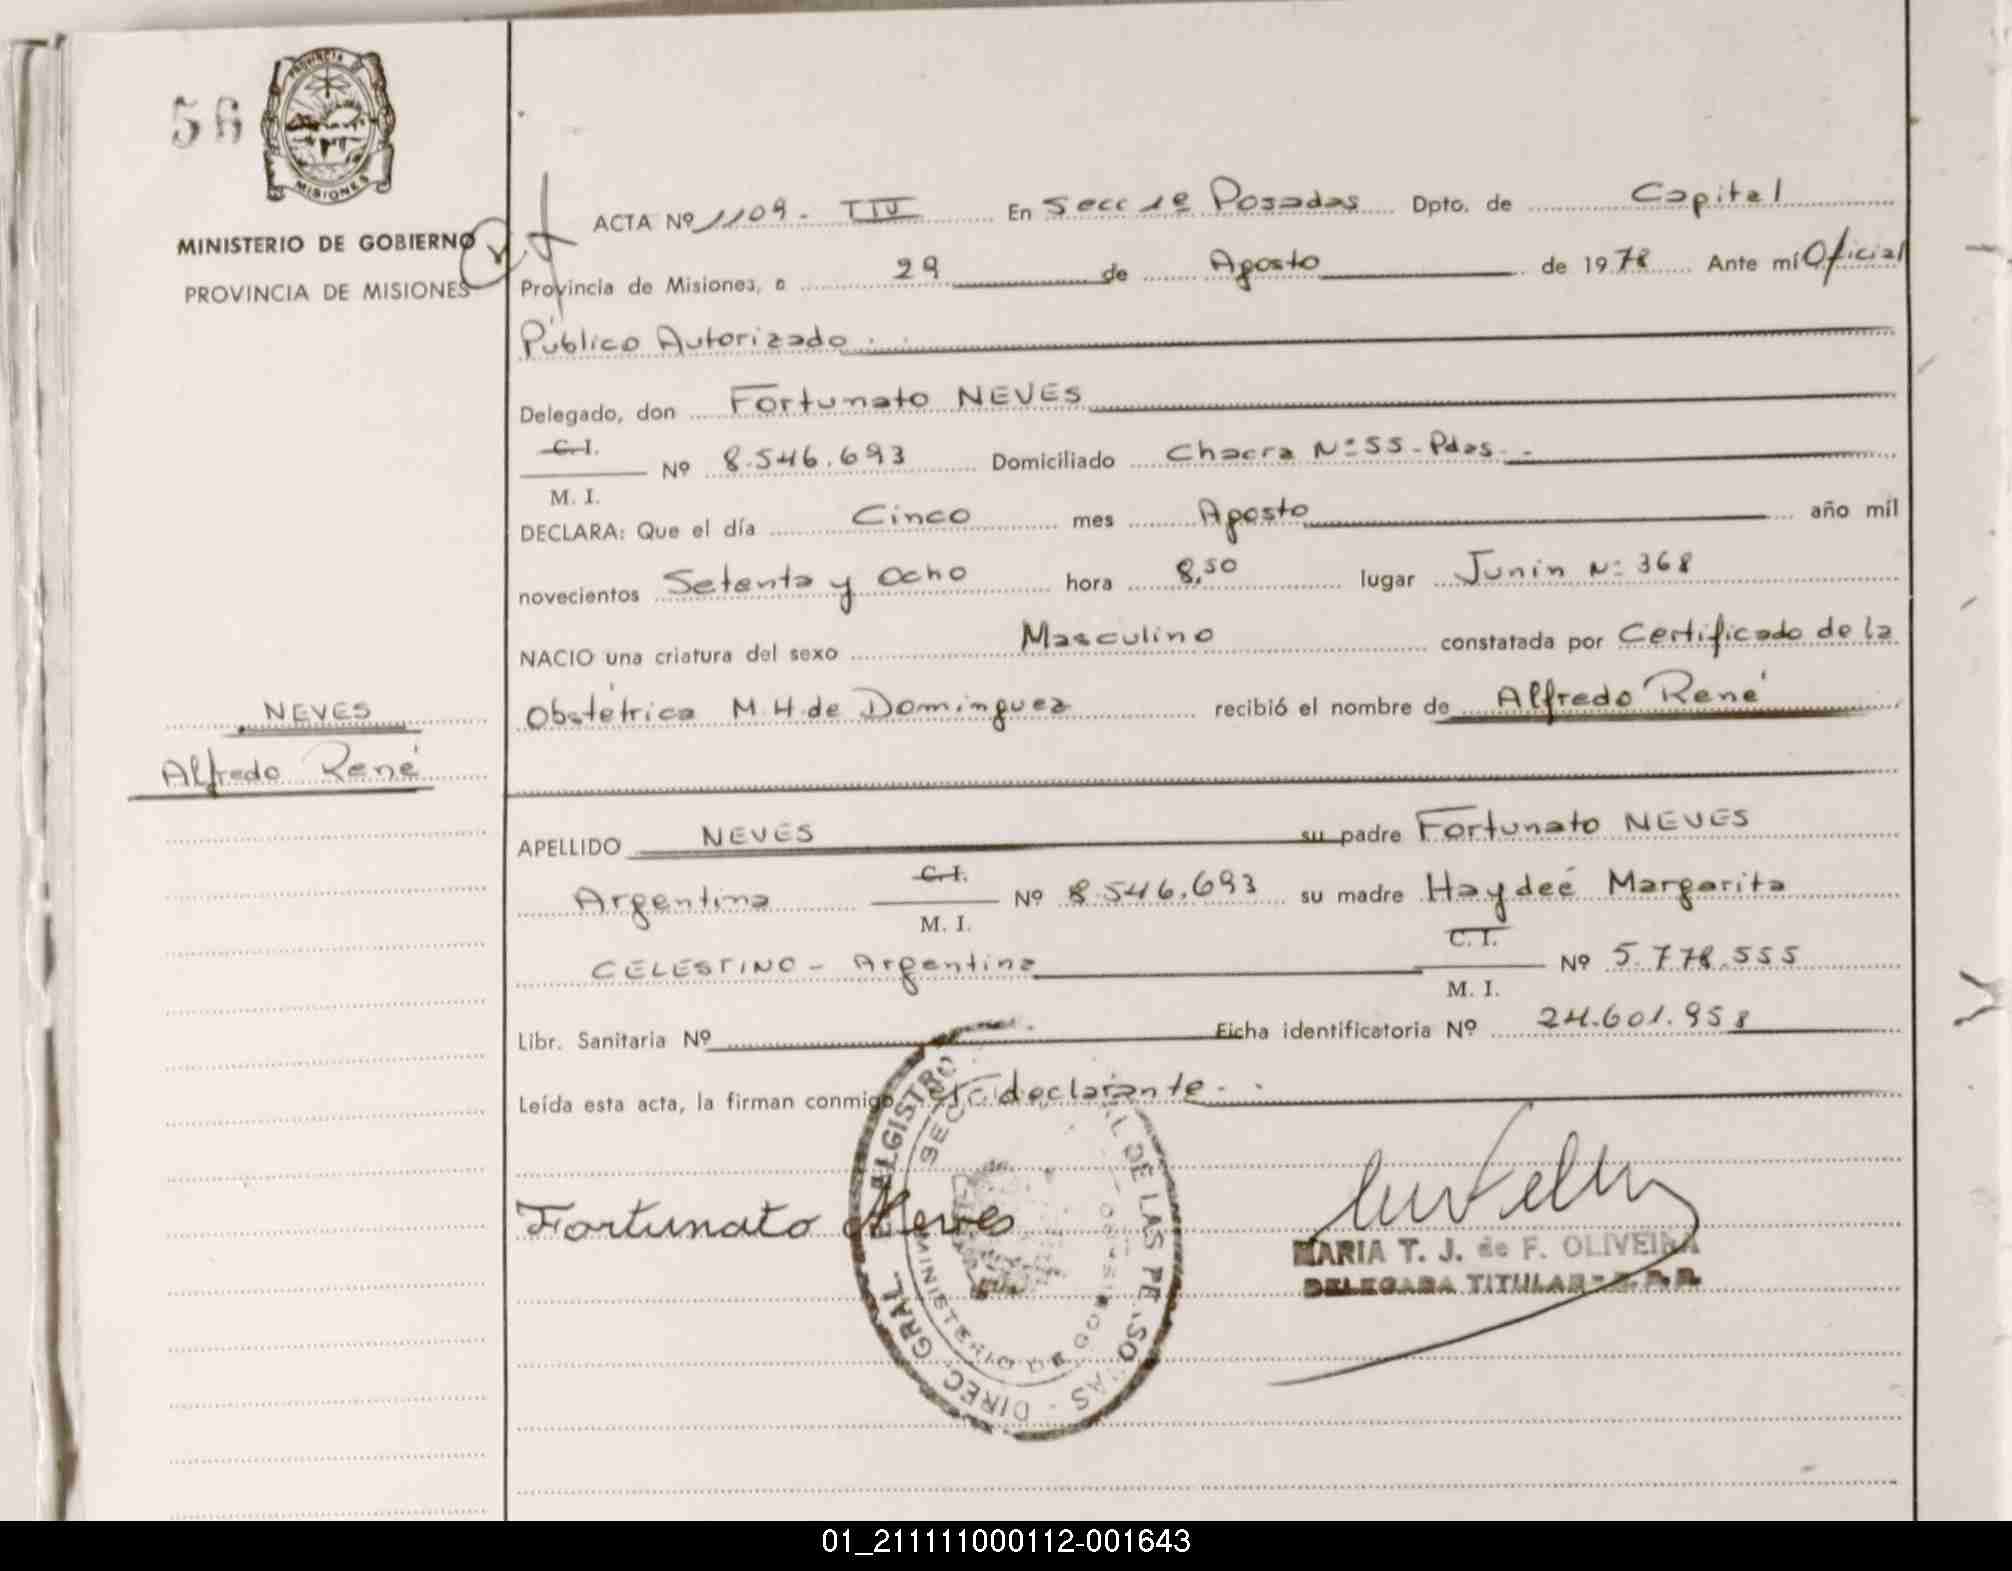 56
PROVINCIA
MISIONES
MINISTERIO DE GOBIERNO
PROVINCIA DE MISIONES
NEVES
Alfredo René
ACTA Nº 1109- TIV En Secc 1º Posadas Dpto. de Capital
Provincia de Misiones, a 29 de Agosto de 1978 Ante mí Oficial
Público Autorizado.
Delegado, don Fortunato NEVES
C.I.
M. I. Nº 8.546.693 Domiciliado Chacra Nº 55-Pdas-
DECLARA: Que el día Cinco mes Agosto año mil
novecientos Setenta y Ocho hora 8,50 lugar Junín Nº 368
NACIO una criatura del sexo Masculino constatada por Certificado de la
Obstétrica M.H de Dominguez recibió el nombre de Alfredo René
APELLIDO NEVES su padre Fortunato NEVES
Argentina C.I. M. I. Nº 8.546.693 su madre Haydeé Margarita
CELESTINO - Argentina C.I. M. I. Nº 5.778.555
Libr. Sanitaria Nº Ficha identificatoria Nº 24.601.958
Leída esta acta, la firman conmigo el declarante-.
Fortunato Neves
DIREC. GRAL. REGISTRO DE LAS PERSONAS
MINISTERIO DE GOBIERNO
MARIA T. J. de F. OLIVEIRA
DELEGADA TITULAR
01_211111000112-001643